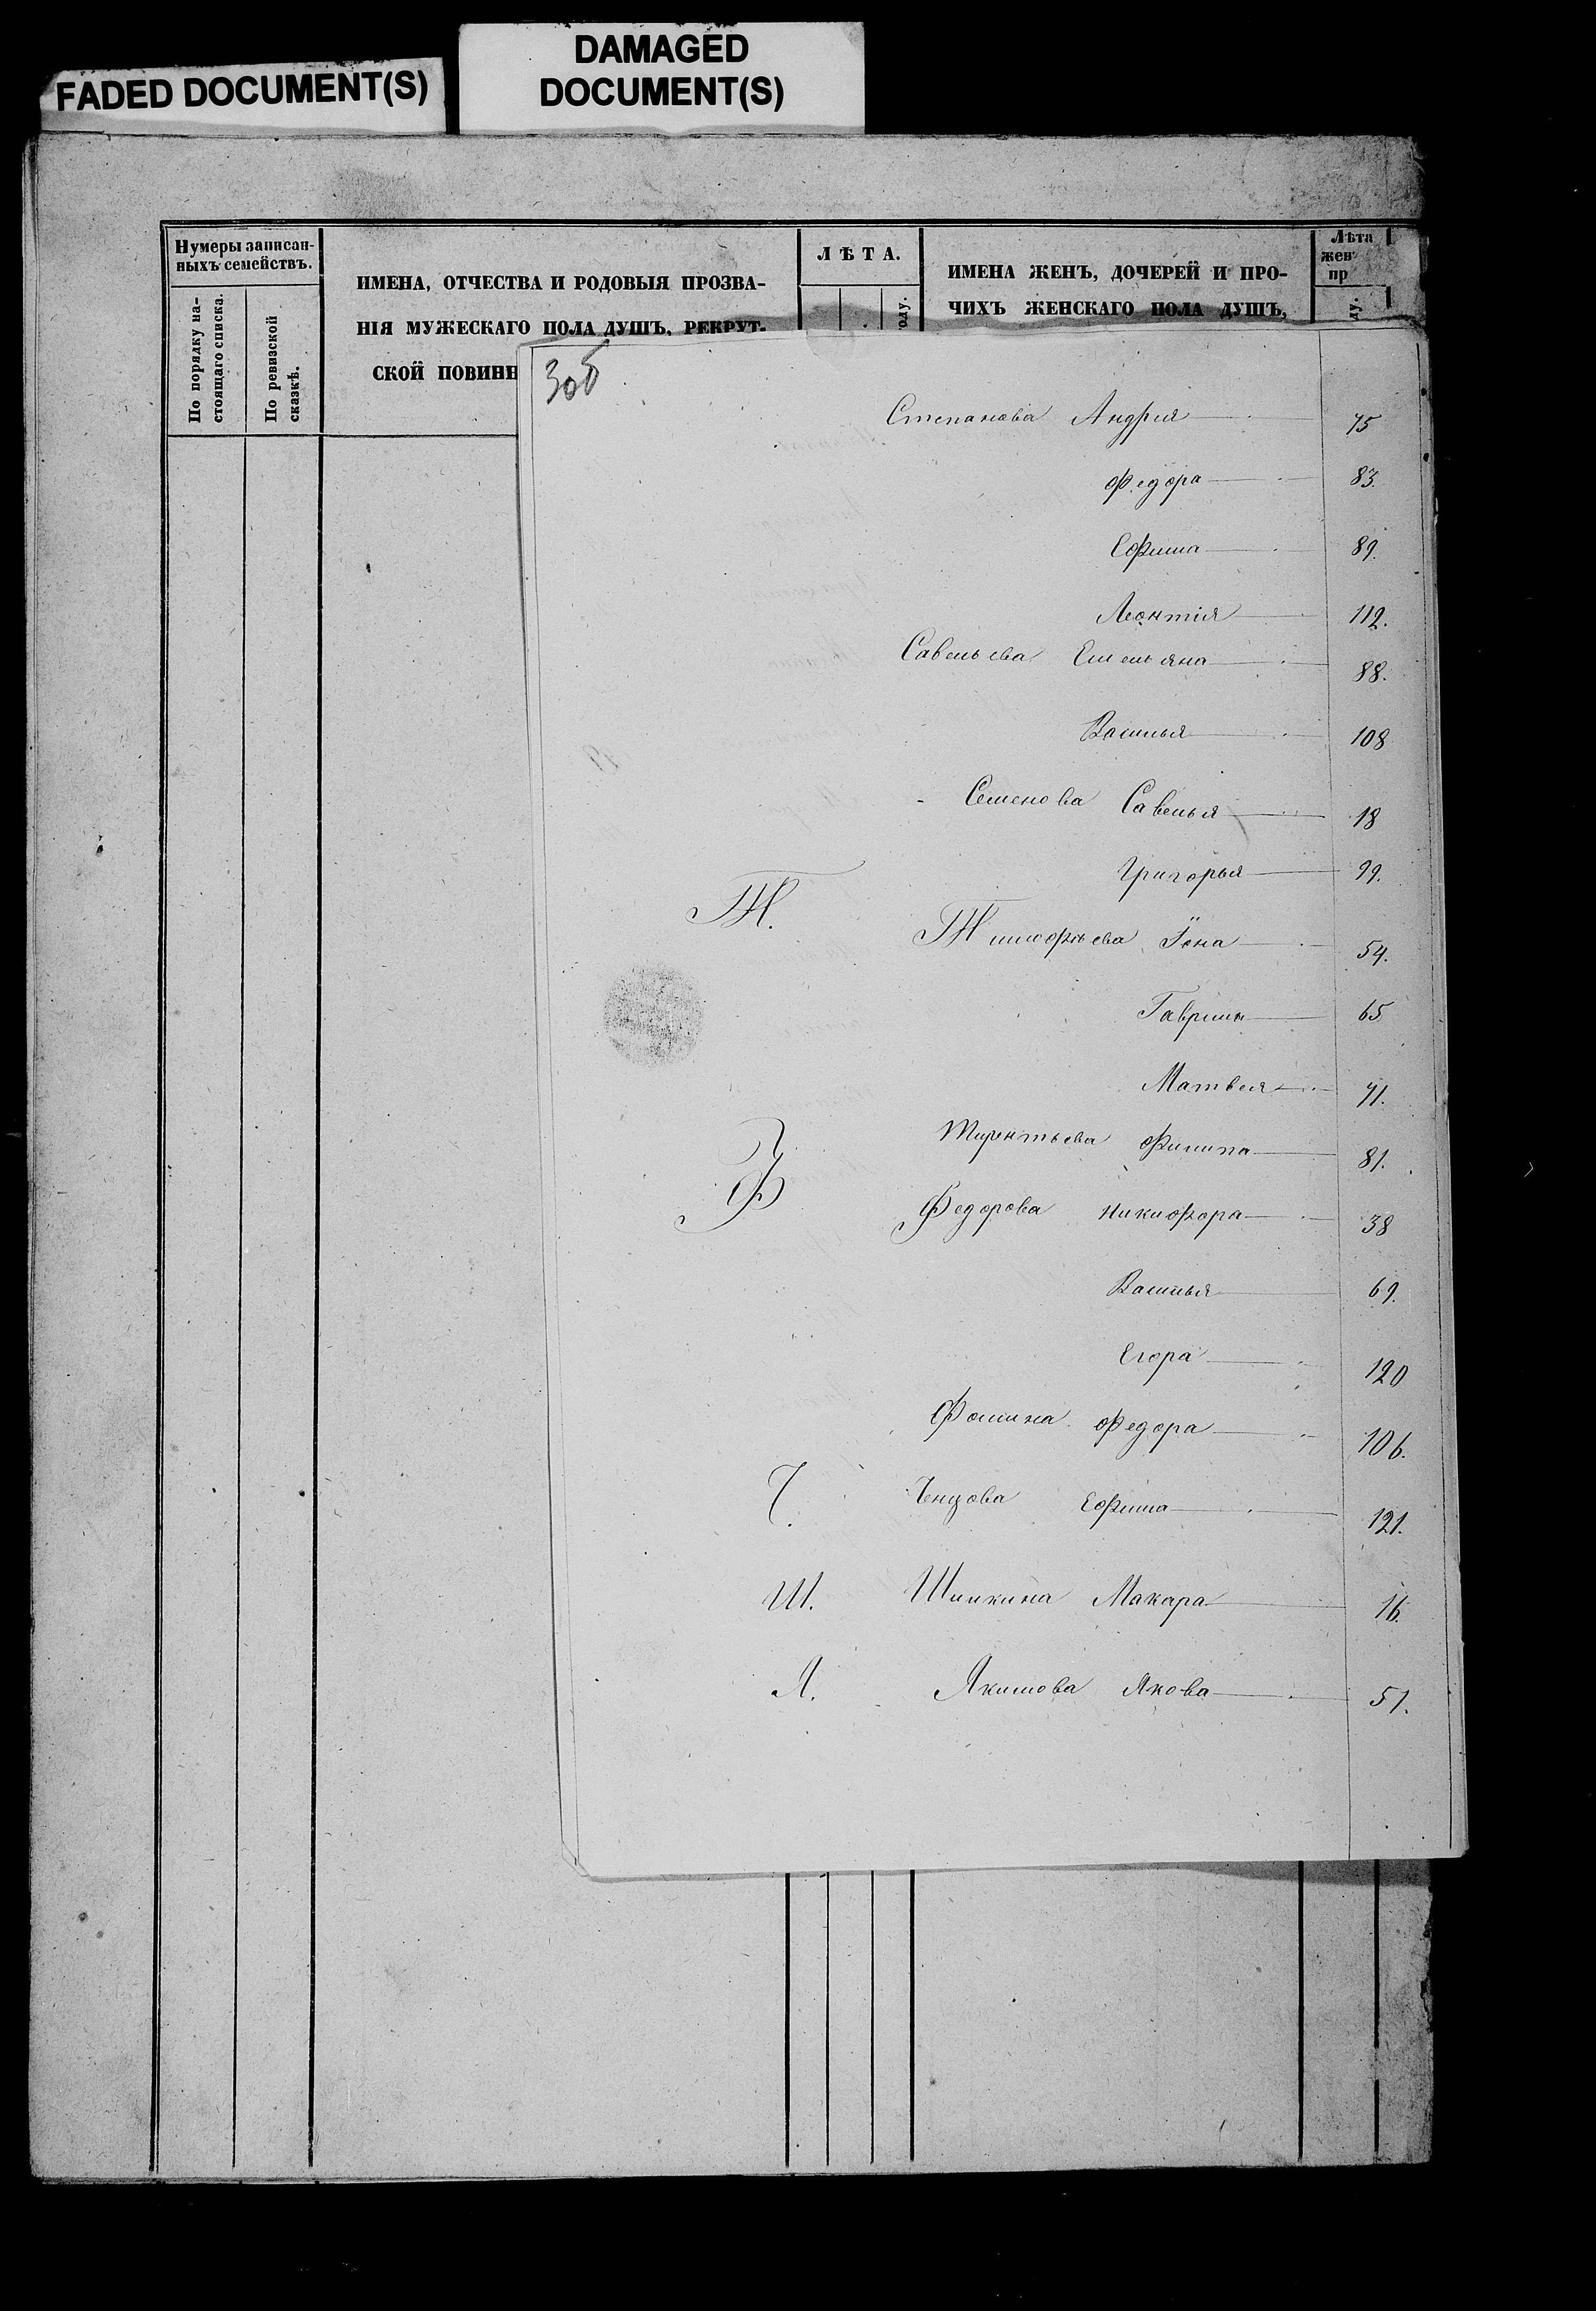 FADED DOCUMENT(S)
DAMAGED
DOCUMENT(S)
Нумеры записан-
ныхъ семействъ.
По порядку на-
стоящаго списка.
По ревизской
сказкѣ.
ИМЕНА, ОТЧЕСТВА И РОДОВЫЯ ПРОЗВА-
НІЯ МУЖЕСКАГО ПОЛА ДУШЪ, РЕКРУТ-
СКОЙ ПОВИНН
ЛѢТА.
оду.
ИМЕНА ЖЕНЪ, ДОЧЕРЕЙ И ПРО-
ЧИХЪ ЖЕНСКАГО ПОЛА ДУШЪ,
Лѣта
жен
пр
ду.
30б
Степанова Андрия 75
Федора 83.
Ефима 89.
Леонтія 112.
Савельева Емельяна 88.
Василья 108
Семенова Савелья 18
Григорья 99.
Т. Тимофѣева Іона 54.
Гаврилы 65
Матвея 71.
Терентьева Филипа 81.
Ф Федорова Никифора 38
Василья 69.
Егора 120
Фомина Федора 106.
Ч. Ченцова Ефима 121.
Ш. Шишкина Макара 16.
Я. Якимова Якова 51.